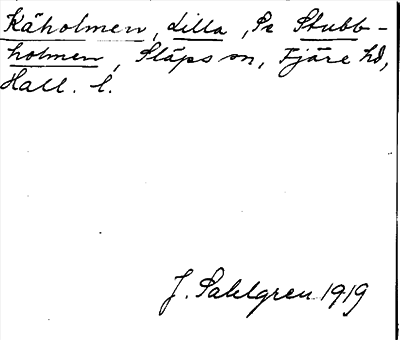 Kåholmen, Lilla, Se Stubb-
holmen, Släps sn, Fjäre hd,
Hall. l.
J. Sahlgren 1919